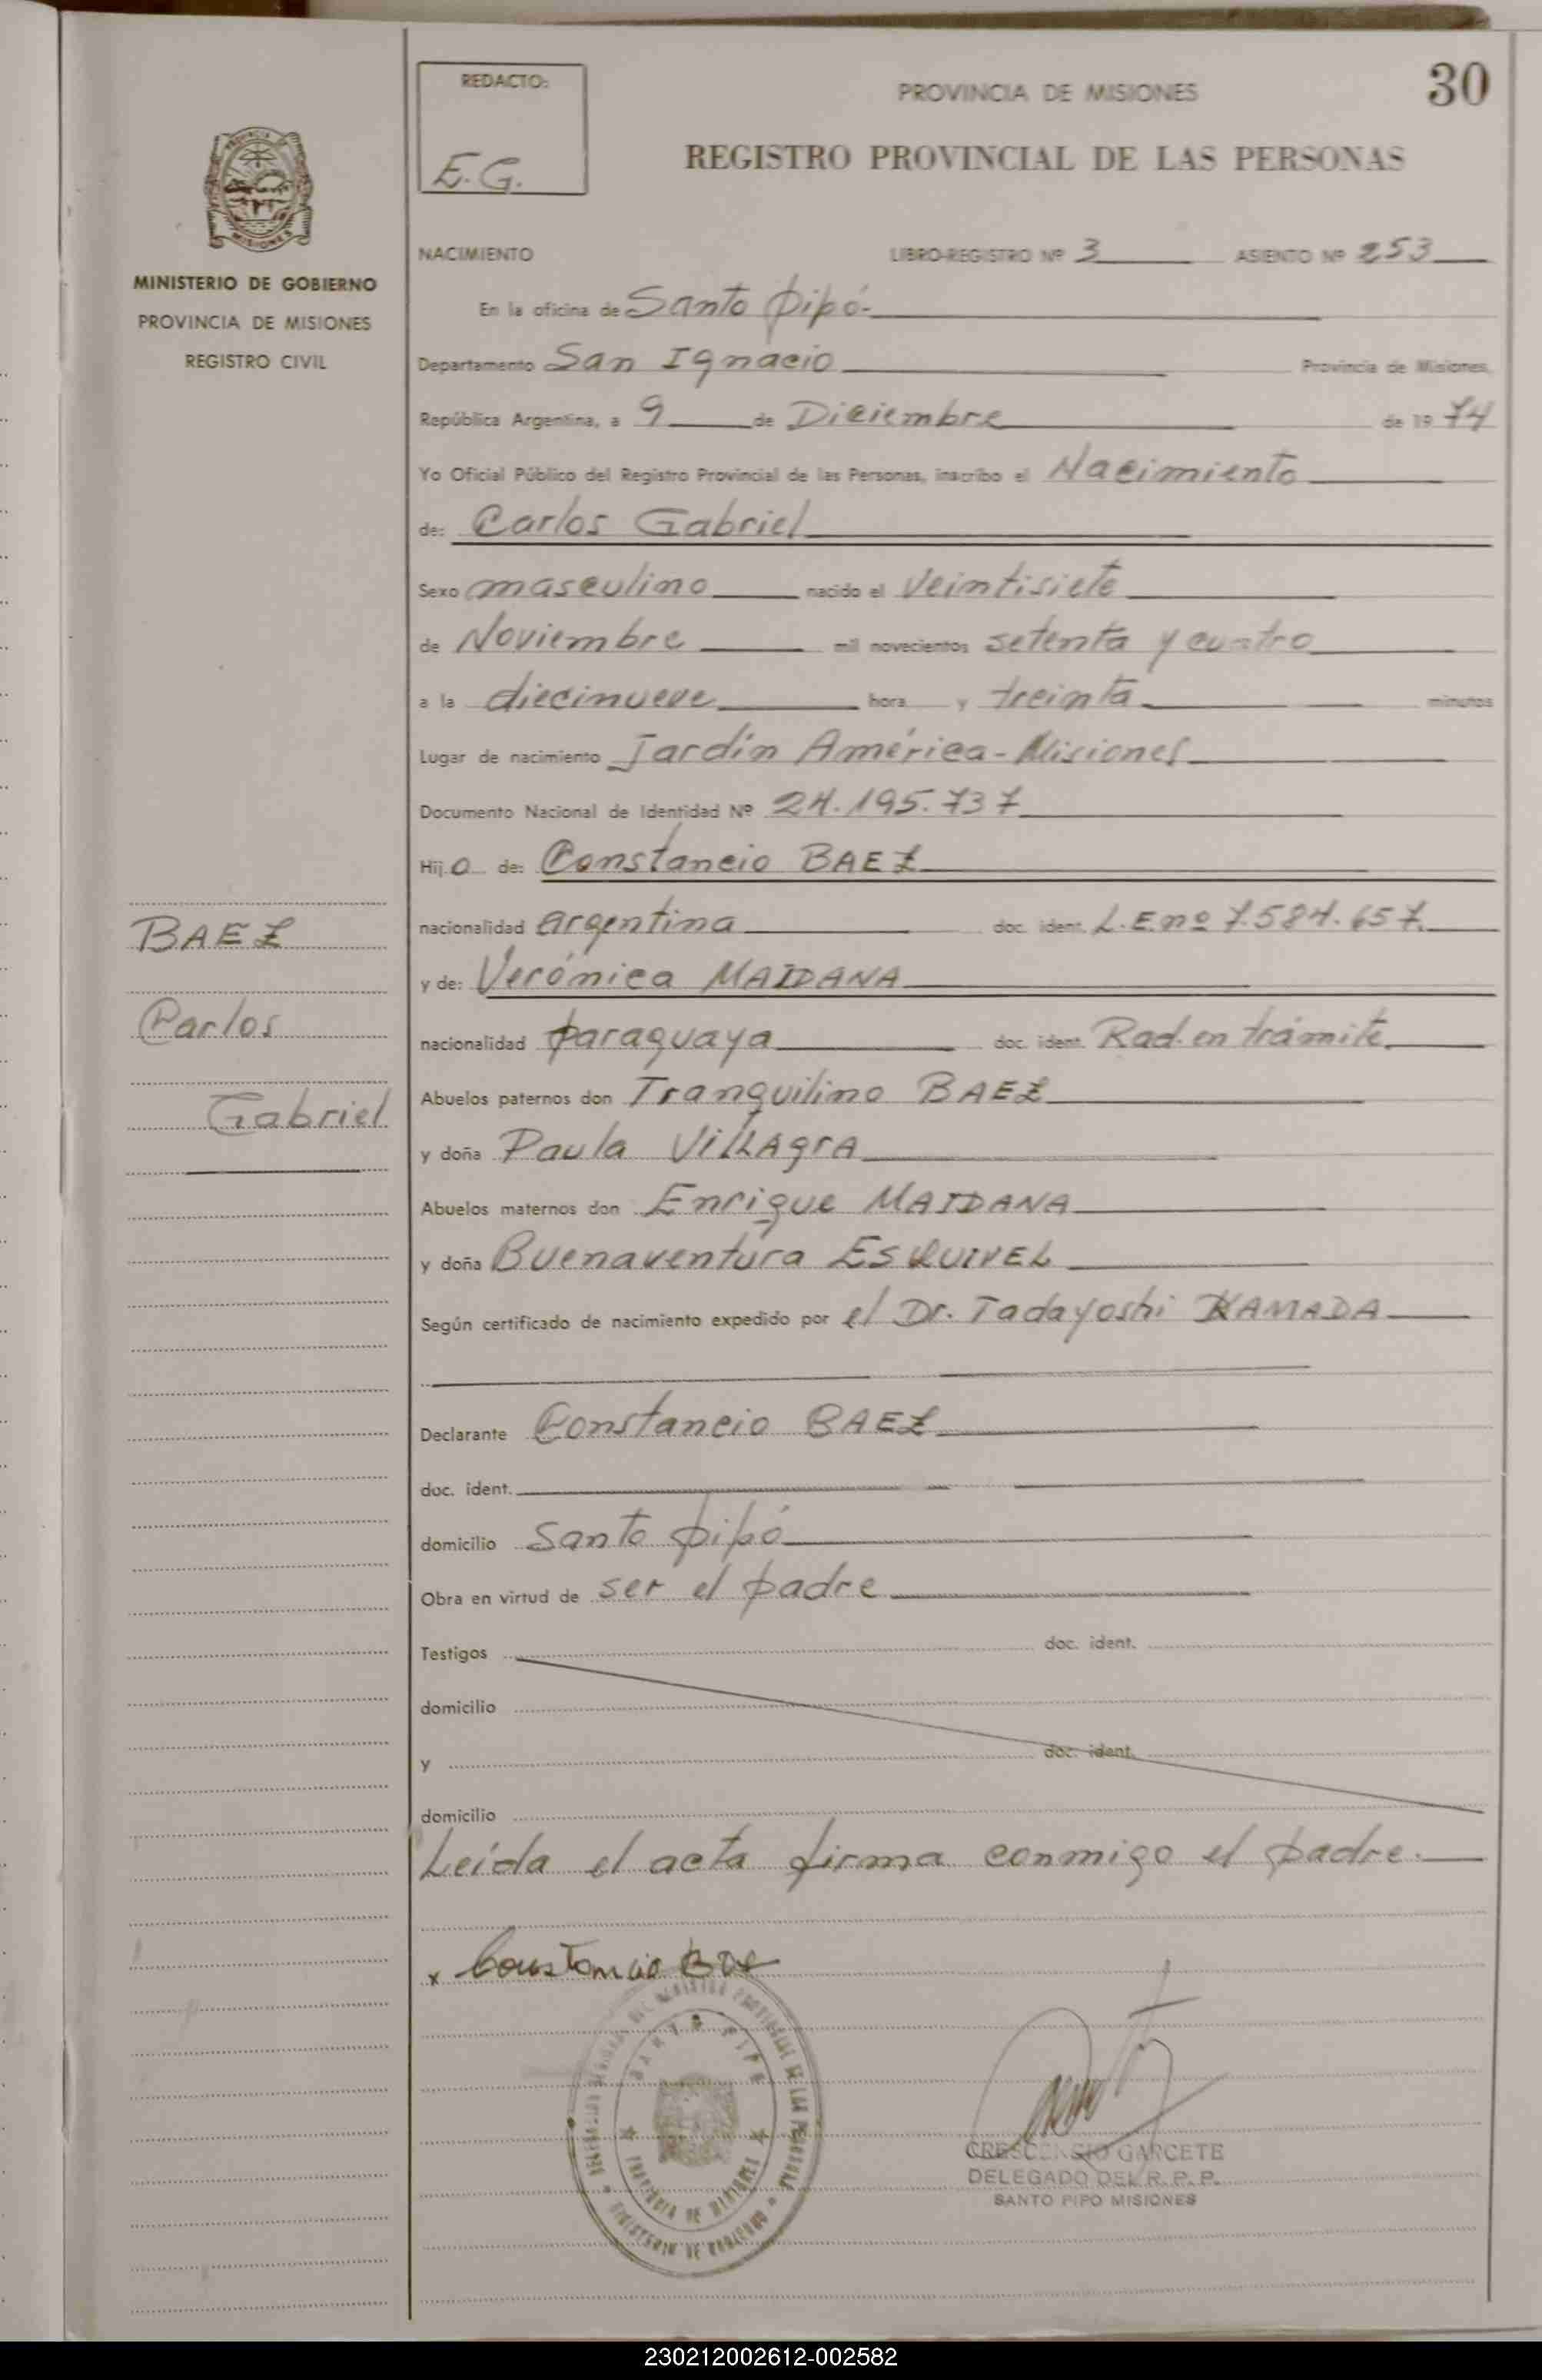 REDACTO:
E.G.
PROVINCIA DE MISIONES
30
REGISTRO PROVINCIAL DE LAS PERSONAS
MINISTERIO DE GOBIERNO
PROVINCIA DE MISIONES
REGISTRO CIVIL
NACIMIENTO LIBRO-REGISTRO Nº 3 ASIENTO Nº 253
En la oficina de Santo Pipó.
Departamento San Ignacio Provincia de Misiones,
República Argentina, a 9 de Diciembre de 19 74
Yo Oficial Público del Registro Provincial de las Personas, inscribo el Nacimiento
de: Carlos Gabriel
Sexo masculino nacido el Veintisiete
de Noviembre mil novecientos setenta y cuatro
a la diecinueve hora y treinta minutos
Lugar de nacimiento Jardín América - Misiones
Documento Nacional de Identidad Nº 24.195.737
Hijo de: Constancio BAEZ
nacionalidad argentina doc. ident. L.E.nº 7.584.657.
y de: Verónica MAIDANA
nacionalidad paraguaya doc. ident. Rad. en trámite.
Abuelos paternos don Tranquilino BAEZ
y doña Paula VillAgrA
Abuelos maternos don Enrique MAIDANA
y doña Buenaventura ESQUIVEL
Según certificado de nacimiento expedido por el Dr. Tadayoshi KAMADA
Declarante Constancio BAEZ
doc. ident.
domicilio Santo Pipó
Obra en virtud de ser el padre
Testigos doc. ident.
domicilio
y doc. ident.
domicilio
Leída el acta firma conmigo el padre.
BAEZ
Carlos
Gabriel
x Constancio Bae
SANTO PIPO
PROVINCIA DE MISIONES
MINISTERIO DE GOBIERNO
DEL REGISTRO PROVINCIAL DE LAS PERSONAS
CRESCENSIO GARCETE
DELEGADO DEL R. P. P.
SANTO PIPO MISIONES
230212002612-002582